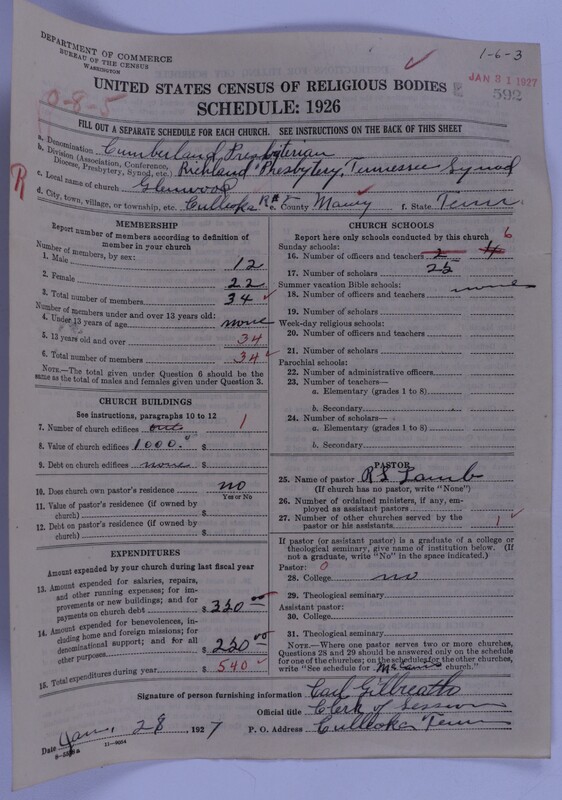 DEPARTMENT OF COMMERCE
BUREAU OF THE CENSUS
WASHINGTON
1-6-3
JAN 31 1927
592
0-8-5
UNITED STATES CENSUS OF RELIGIOUS BODIES
SCHEDULE: 1926
FILL OUT A SEPARATE SCHEDULE FOR EACH CHURCH. SEE INSTRUCTIONS ON THE BACK OF THIS SHEET
a. Denomination Cumberland Presbyterian
b. Division (Association, Conference, Diocese, Presbytery, Synod, etc.) Richland Presbytery, Tennessee Synod
R
c. Local name of church Glenwood
d. City, town, village, or township, etc. Culleoka R#5 e. County Maury f. State Tenn
MEMBERSHIP
Report number of members according to definition of member in your church
Number of members, by sex:
1. Male 12
2. Female 22
3. Total number of members 34
Number of members under and over 13 years old:
4. Under 13 years of age none
5. 13 years old and over 34
6. Total number of members 34
NOTE.—The total given under Question 6 should be the same as the total of males and females given under Question 3.
CHURCH BUILDINGS
See instructions, paragraphs 10 to 12
7. Number of church edifices 1
8. Value of church edifices 1000.0 $
9. Debt on church edifices none $
10. Does church own pastor's residence no
Yes or No
11. Value of pastor's residence (if owned by church) $
12. Debt on pastor's residence (if owned by church) $
EXPENDITURES
Amount expended by your church during last fiscal year
13. Amount expended for salaries, repairs, and other running expenses; for improvements or new buildings; and for payments on church debt $ 00
14. Amount expended for benevolences, including home and foreign missions; for denominational support; and for all other purposes $ 00
15. Total expenditures during year $ 540
CHURCH SCHOOLS
Report here only schools conducted by this church
6
Sunday schools:
16. Number of officers and teachers 2 4
17. Number of scholars 25
Summer vacation Bible schools:
18. Number of officers and teachers none
19. Number of scholars
Week-day religious schools:
20. Number of officers and teachers
21. Number of scholars
Parochial schools:
22. Number of administrative officers
23. Number of teachers—
a. Elementary (grades 1 to 8)
b. Secondary
24. Number of scholars—
a. Elementary (grades 1 to 8)
b. Secondary
PASTOR
25. Name of pastor R S Lamb
(If church has no pastor, write "None")
26. Number of ordained ministers, if any, employed as assistant pastors
27. Number of other churches served by the pastor or his assistants 1
If pastor (or assistant pastor) is a graduate of a college or theological seminary, give name of institution below. (If not a graduate, write "No" in the space indicated.)
Pastor: 0
28. College no
29. Theological seminary
Assistant pastor:
30. College
31. Theological seminary
NOTE.—Where one pastor serves two or more churches, Questions 28 and 29 should be answered only on the schedule for one of the churches; on the schedules for the other churches, write "See schedule for McCains church."
Signature of person furnishing information Carl Gilbreath
Official title Clerk of Session
Date Jan, 28, 1927 P. O. Address Culleoka Tenn
11-9064